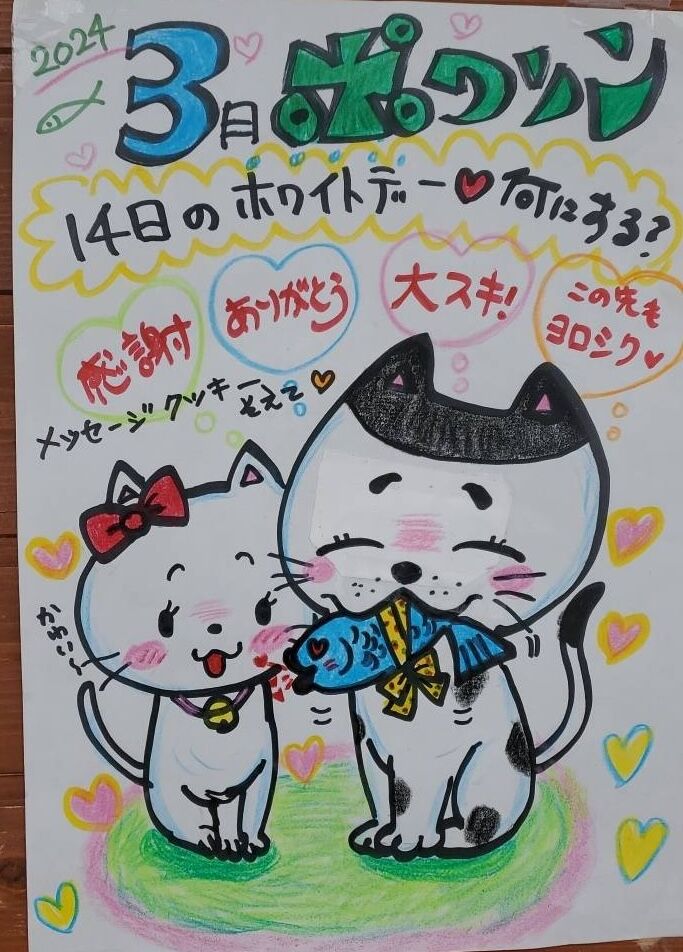 2024
3月 ポワソン
14日のホワイトデー♥何にする?
感謝
ありがとう
大スキ!
この先も
ヨロシク♥
メッセージクッキーそえて♡